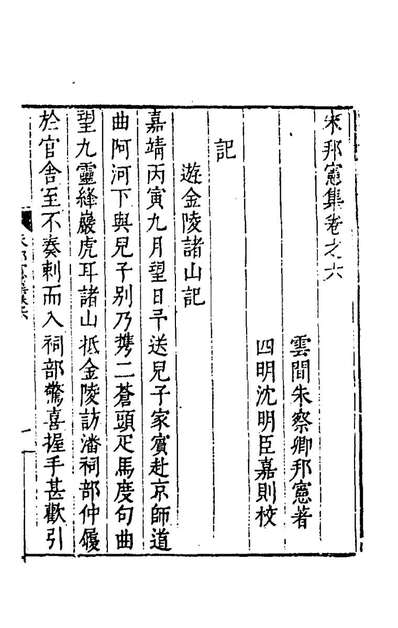 朱邦憲集卷之六
雲間朱察卿邦憲著
四明沈明臣嘉則校
記
遊金陵諸山記
嘉靖丙寅九月望日予送兒子家賓赴京師道
曲阿河下與兒子別乃携二蒼頭疋馬度句曲
望九靈絳巖虎耳諸山抵金陵訪潘祠部仲履
於官舍至不奏刺而入祠部驚喜握手甚歡引